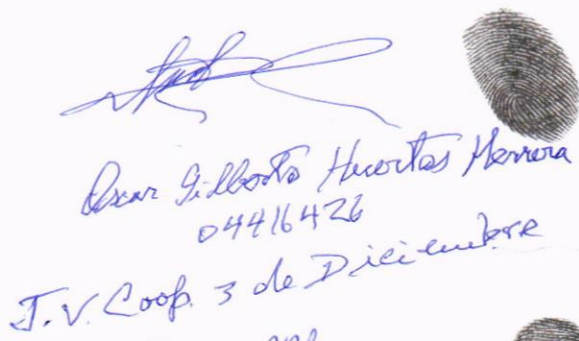 Oscar Gilberto Huertas Herrera
04416426
J.V. Coop. 3 de Diciembre